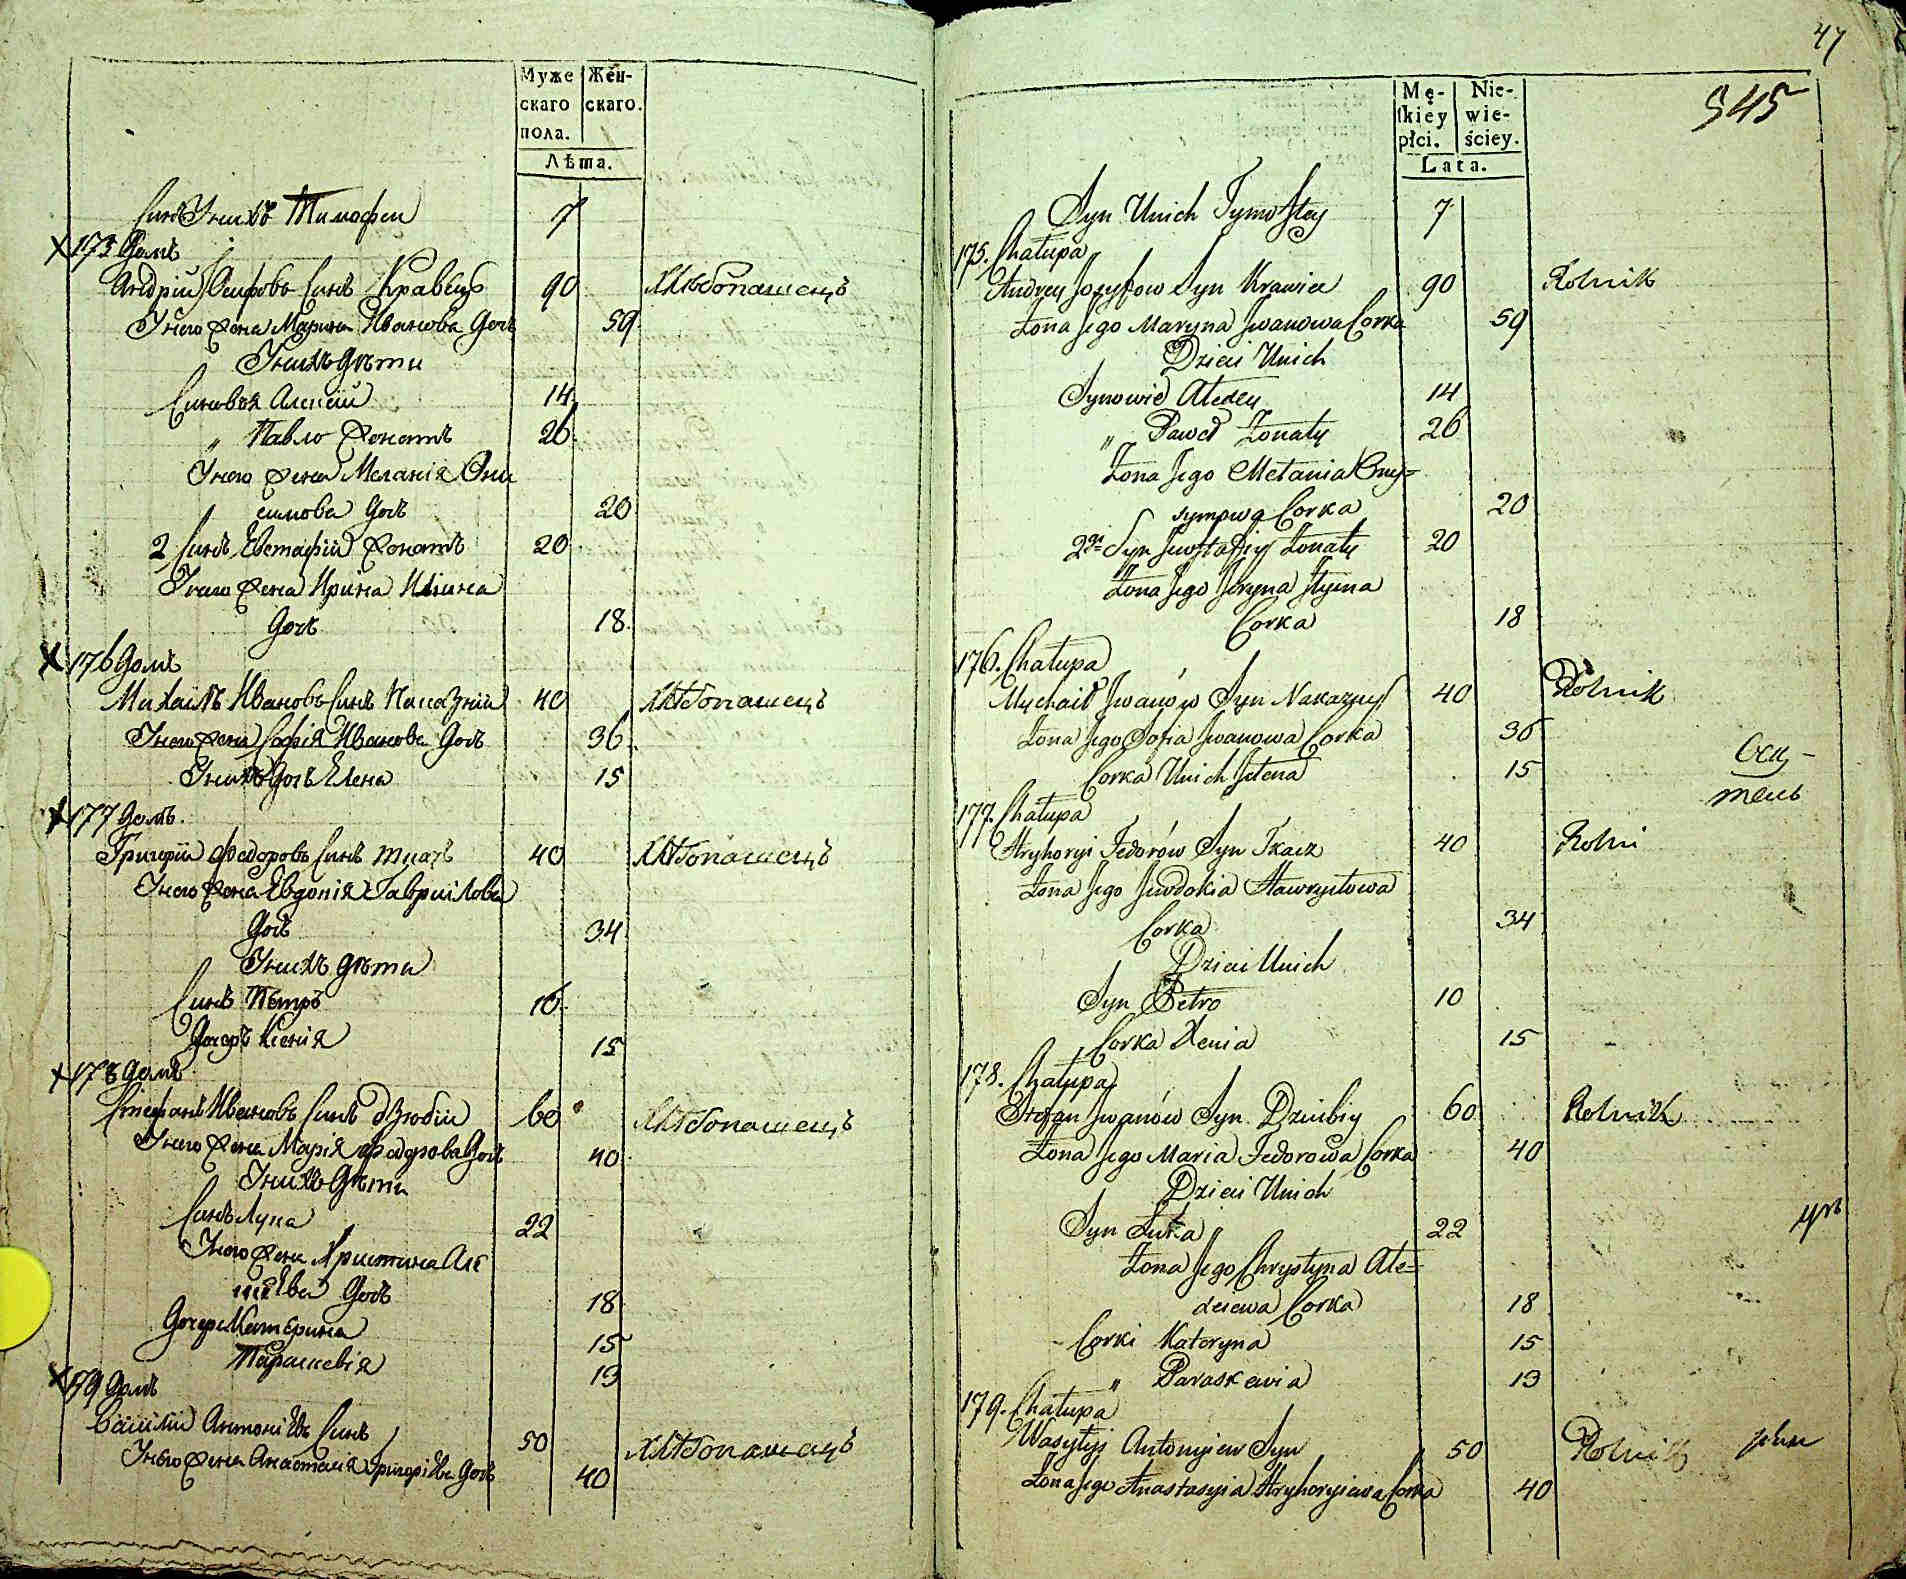 Муже Жен-
скаго скаго.
пола.
Лѣта.
Синъ Унихъ Тимофей 7
175 Домъ
Андрій Осифовъ Синъ Кравецъ 90 Хлѣбопашецъ
Унего Жена Марина Иванова Дочь 59
Унихъ Дѣти
Синовья Алексій 14
„ Павло Жонатъ 26
Унего Жена Меланія Они
симова Дочь 20
2 Синъ Евстафій Жонатъ 20
Унего Жена Ирина Илина
Дочь 18
176 Домъ
Михаилъ Ивановъ Синъ 40 Хлѣбопашецъ
Унего Жена Софія Иванова Дочь 36
Унихъ Дочь Елена 15
177 Домъ
Григорій Федоровъ Синъ Ткачъ 40 Хлѣбопашецъ
Унего Жена Евдокія Гавриілова
Дочь 34
Унихъ Дѣти
Синъ Петръ 10
Дочеръ Ксенія 15
178 Домъ
Стефанъ Ивановъ Синъ Дзюбій 60 Хлѣбопашецъ
Унего Жена Марія Федорова Дочь 40
Унихъ Дѣти
Синъ Лука 22
Унего Жена Христина Але
ксіева Дочь 18
Дочери Катерина 15
Параскевія 13
179 Домъ
Василій Антоніевъ Синъ 50 Хлѣбопашецъ
Унего Жена Анастасія Григоріева Дочь 40
47
345
Mę- Nie-
ſkiey wie-
płci. ściey.
Lata.
Syn Unich Tymoftey 7
175. Chałupa
Andrey Jozyfow Syn Krawiec 90 Rolnik
Żona Jego Maryna Jwanowa Corka 59
Dzieci Unich
Synowie Alexey 14
„ Paweł Żonaty 26
Żona Jego Mełania Ony=
symowa Corka 20
2gi Syn Jwstafiy Żonaty 20
Żona Jego Jryna Jlyina
Corka 18
176. Chałupa
Mychaił Jwanów Syn Nakazny 40 Rolnik
Żona Jego Sofia Jwanowa Corka 36
Corka Unich Jełena 15
177. Chałupa
Hryhoryi Fedorów Syn Tkacz 40 Rolni
Żona Jego Jewdokia Hawryłowa
Corka 34
Dzieci Unich
Syn Petro 10
Corka Xenia 15
178. Chałupa
Stefan Jwanów Syn Dziubiy 60 Rolnik
Żona Jego Maria Fedorowa Corka 40
Dzieci Unich
Syn Łuka 22
Żona Jego Chrystyna Ale=
xiewa Corka 18
Corki Kateryna 15
„ Paraskewia 13
179. Chałupa
Wasylyi Antonyiew Syn 50 Rolnik
Żona Jego Anastasyia Hryhoryiewa Corka 40